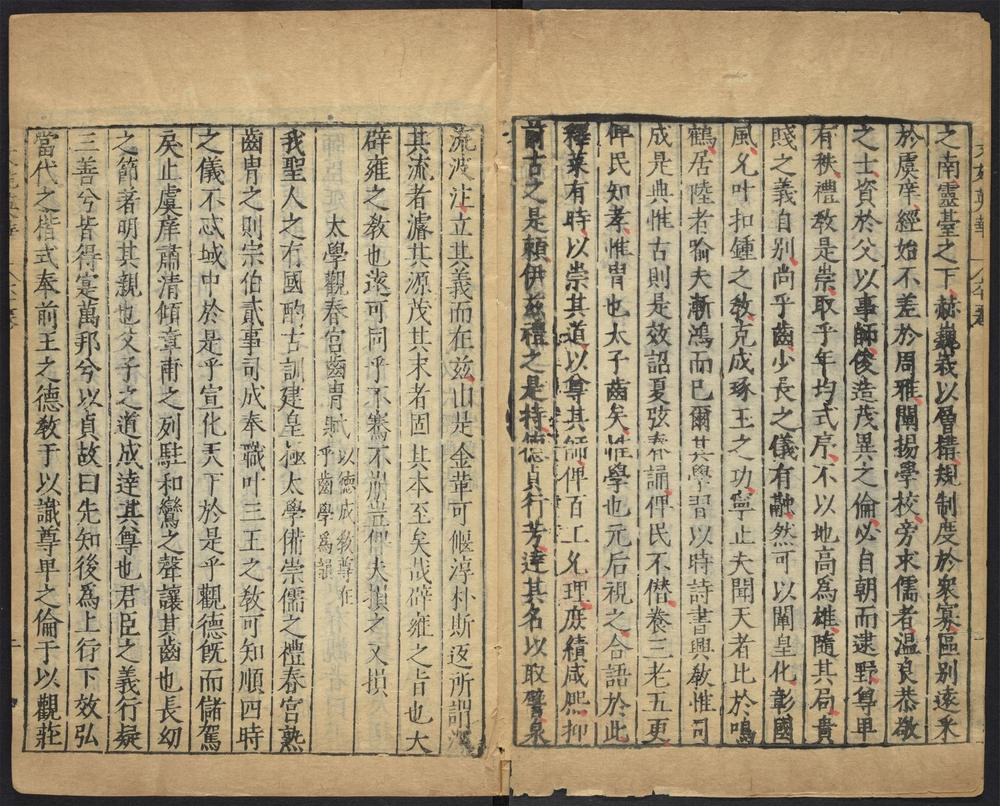 之南靈臺之下赫巍峩以層構規制度於衆寡區别遠釆
於虞庠經始不差於周雅闡揚學校旁求儒者温良恭敬
之士資於父以事師俊造茂異之倫必自朝而逮野尊卑
有秩禮敎是崇取乎年均式序不以地高爲雄隨其局貴
賤之義自别尚乎齒少長之儀有融然可以闡皇化彰國
風允叶扣鍾之敎克成琢玉之功寧止夫聞天者比於鳴
鶴居陸者喻夫漸鴻而巳爾其學習以時詩書興敎惟司
成是典惟古則是效詔夏弦春誦俾民不僣養三老五更
俾民知孝惟胄也太子齒矣惟學也元后視之合語於此
釋菜有時以崇其道以尊其師俾百工允理庶績咸熈抑
前古之是頼伊兹禮之是持德貞行芳達其名以取譬泉
流波注立其義而在兹山是金革可偃淳朴斯返所謂
其流者濬其源茂其末者固其本至矣㢤辟雍之旨也大
辟雍之敎也遂可同乎不騫不崩豈俾夫損之又損
太學觀春宫齒胄賦 以德成敎尊在乎齒學爲韻
我聖人之有國酌古訓建皇極太學俻崇儒之禮春宫熟
齒胄之則宗伯貳事司成奉職叶三王之敎可知順四時
之儀不忒城中於是乎宣化天下於是乎觀德旣而儲駕
戾止虞庠肅清傾章甫之列駐和鸞之聲讓其齒也長幼
之節著明其親也父子之道成達其尊也君臣之義行疑
三善兮皆得寔萬邦兮以貞故曰先知後爲上行下效弘
當代之楷式奉前王之德敎于以識尊卑之倫于以觀莊